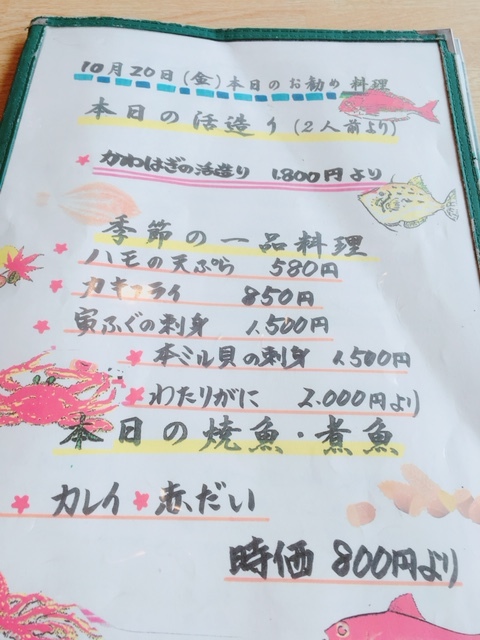 10月20日(金)本日のお勧め料理
本日の活造り(2人前より)
かわはぎの活造り 1.800円より
季節の一品料理
ハモの天ぷら 580円
カキフライ 850円
寅ふぐの刺身 1.500円
本ミル貝の刺身 1.500円
わたりがに 2.000円より
本日の焼魚・煮魚
カレイ 赤だい
時価 800円より